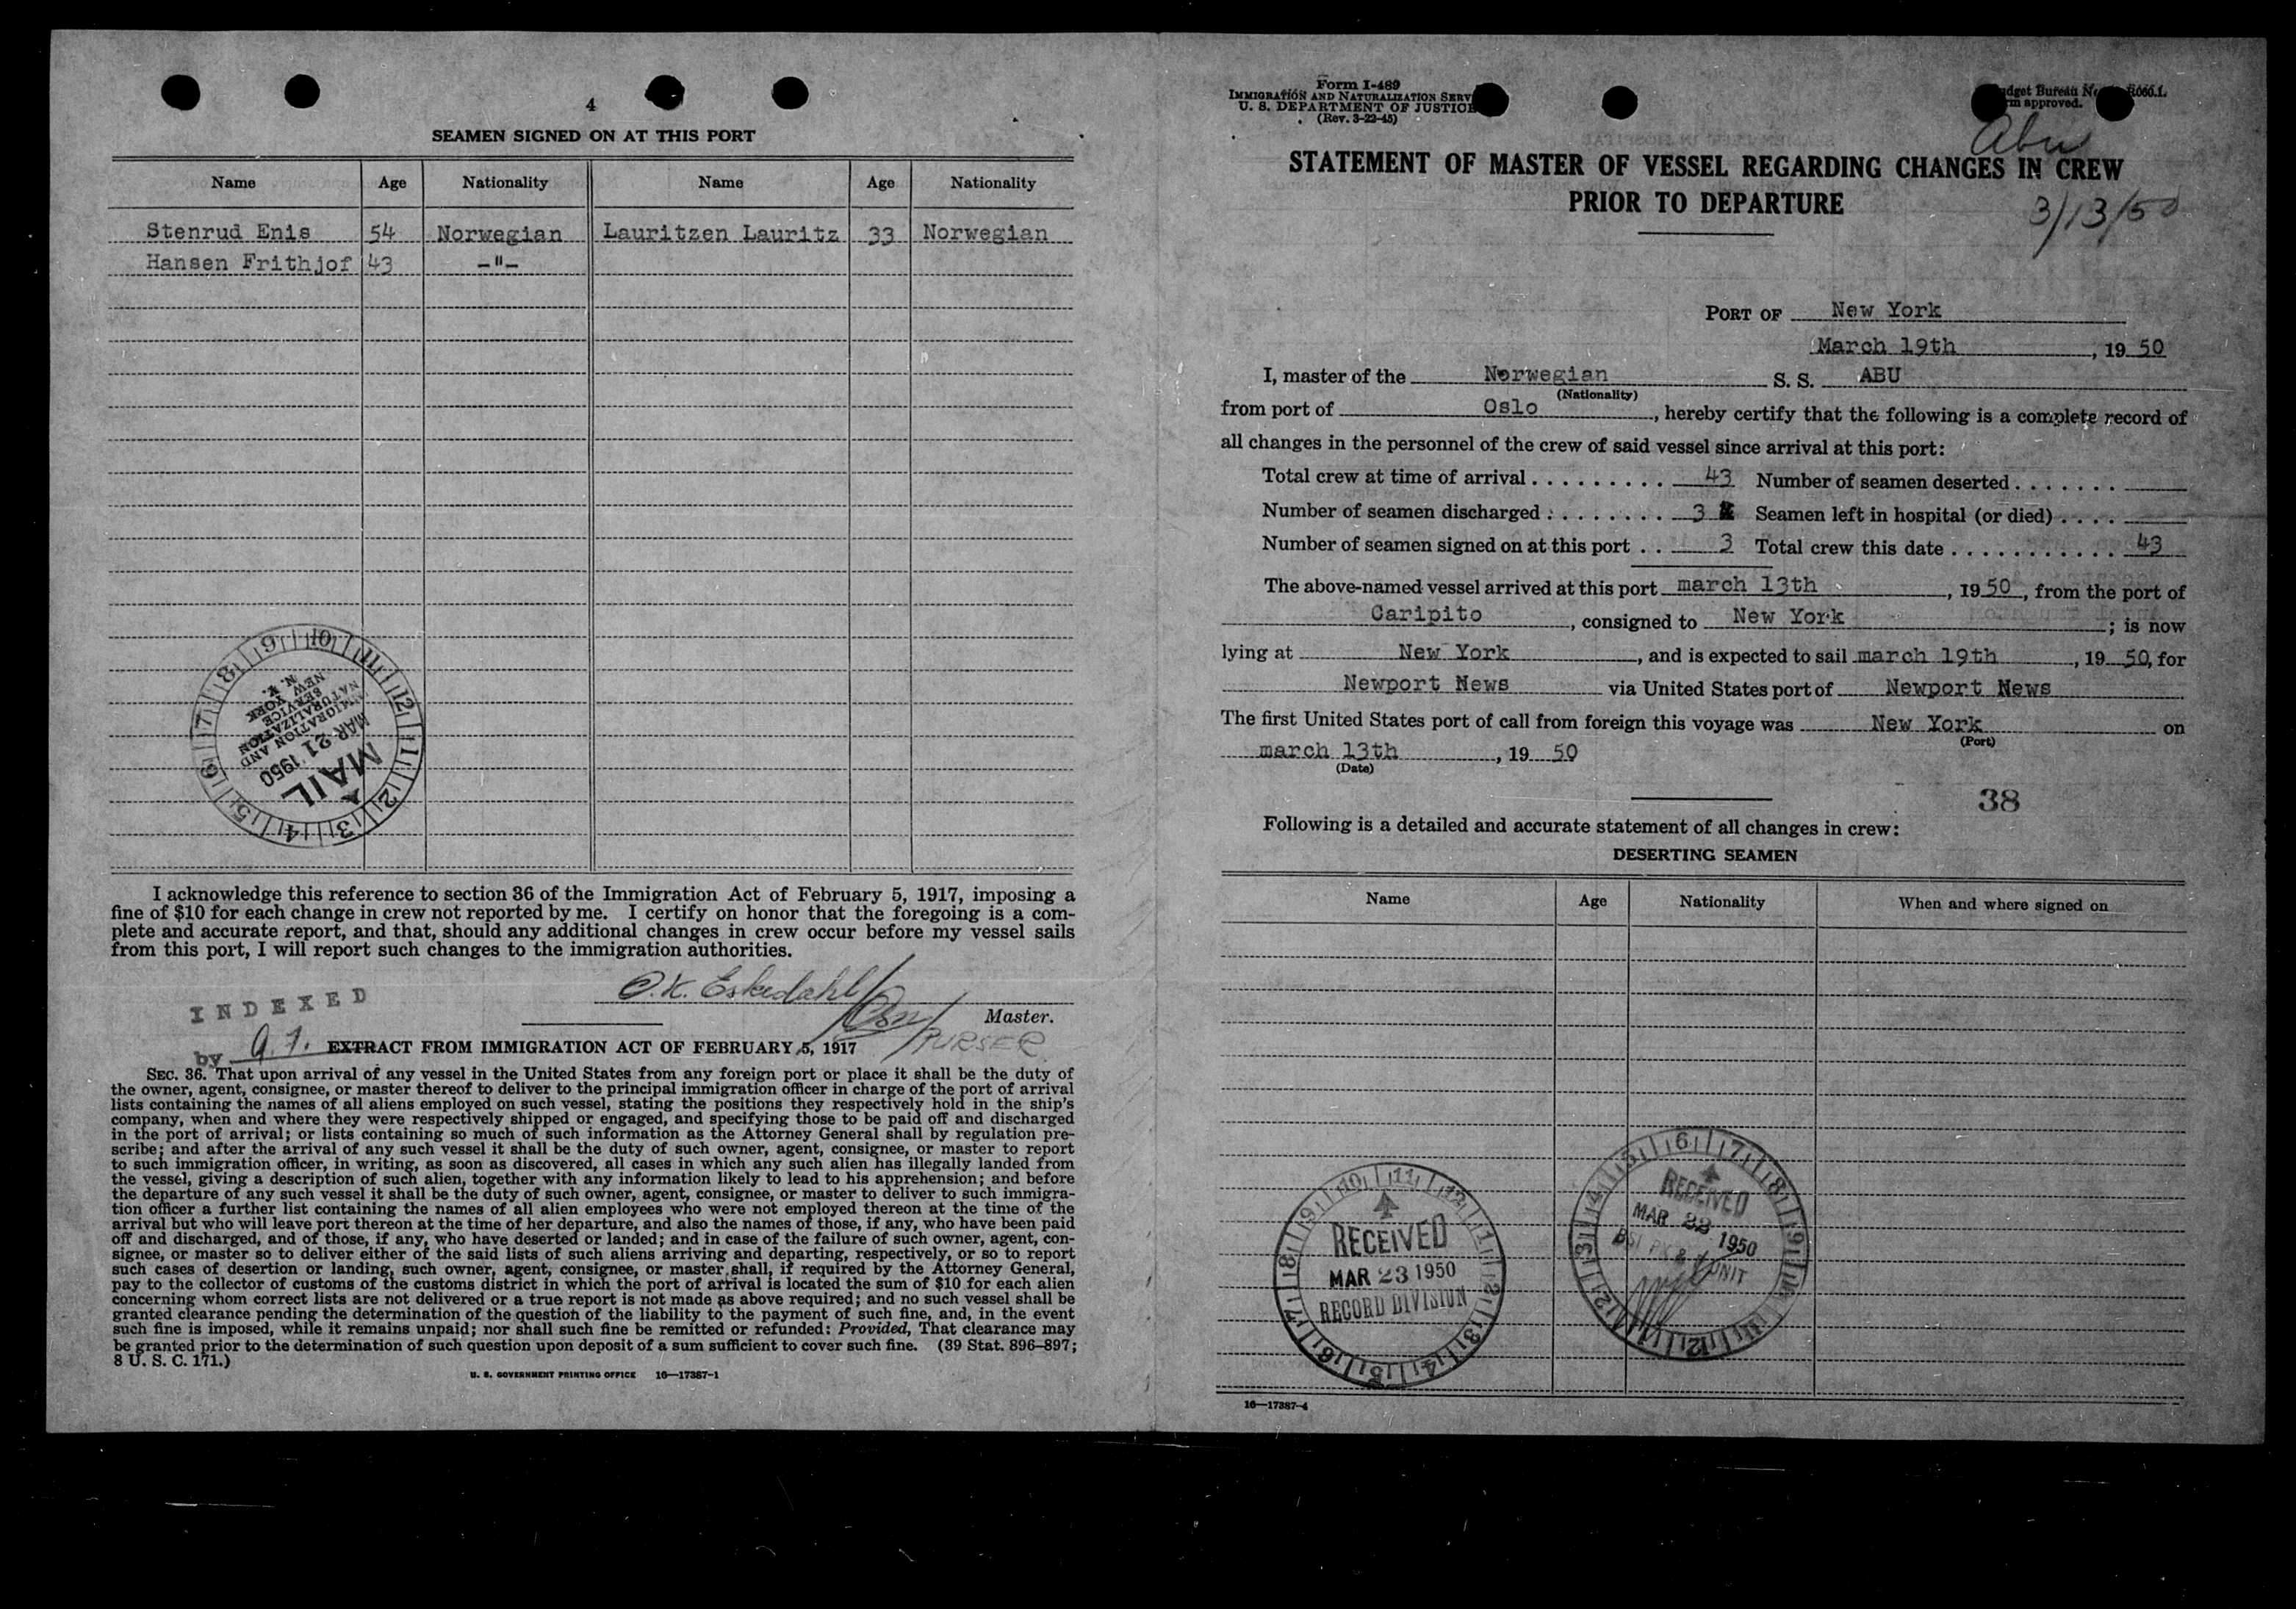 4
SEAMEN SIGNED ON AT THIS PORT
Name Age Nationality Name Age Nationality
Stenrud Enis 54 Norwegian Lauritzen Lauritz 33 Norwegian
Hansen Frithjof 43 —"—
MAIL
MAR 21 1950
IMMIGRATION AND
NATURALIZATION
SERVICE
NEW YORK
N. Y.
I acknowledge this reference to section 36 of the Immigration Act of February 5, 1917, imposing a
fine of $10 for each change in crew not reported by me. I certify on honor that the foregoing is a com-
plete and accurate report, and that, should any additional changes in crew occur before my vessel sails
from this port, I will report such changes to the immigration authorities.
O.K. Eskedahl
Master.
PURSER
INDEXED
by
EXTRACT FROM IMMIGRATION ACT OF FEBRUARY 5, 1917
SEC. 36. That upon arrival of any vessel in the United States from any foreign port or place it shall be the duty of
the owner, agent, consignee, or master thereof to deliver to the principal immigration officer in charge of the port of arrival
lists containing the names of all aliens employed on such vessel, stating the positions they respectively hold in the ship's
company, when and where they were respectively shipped or engaged, and specifying those to be paid off and discharged
in the port of arrival; or lists containing so much of such information as the Attorney General shall by regulation pre-
scribe; and after the arrival of any such vessel it shall be the duty of such owner, agent, consignee, or master to report
to such immigration officer, in writing, as soon as discovered, all cases in which any such alien has illegally landed from
the vessel, giving a description of such alien, together with any information likely to lead to his apprehension; and before
the departure of any such vessel it shall be the duty of such owner, agent, consignee, or master to deliver to such immigra-
tion officer a further list containing the names of all alien employees who were not employed thereon at the time of the
arrival but who will leave port thereon at the time of her departure, and also the names of those, if any, who have been paid
off and discharged, and of those, if any, who have deserted or landed; and in case of the failure of such owner, agent, con-
signee, or master so to deliver either of the said lists of such aliens arriving and departing, respectively, or so to report
such cases of desertion or landing, such owner, agent, consignee, or master shall, if required by the Attorney General,
pay to the collector of customs of the customs district in which the port of arrival is located the sum of $10 for each alien
concerning whom correct lists are not delivered or a true report is not made as above required; and no such vessel shall be
granted clearance pending the determination of the question of the liability to the payment of such fine, and, in the event
such fine is imposed, while it remains unpaid; nor shall such fine be remitted or refunded: Provided, That clearance may
be granted prior to the determination of such question upon deposit of a sum sufficient to cover such fine. (39 Stat. 896–897;
8 U. S. C. 171.)
U. S. GOVERNMENT PRINTING OFFICE 16—17387-1
Form I-489
IMMIGRATION AND NATURALIZATION SERV
U. S. DEPARTMENT OF JUSTICE
(Rev. 3-22-45)
dget Bureau
rm approved.
Abu
STATEMENT OF MASTER OF VESSEL REGARDING CHANGES IN CREW
PRIOR TO DEPARTURE
3/13/50
PORT OF New York
March 19th, 19 50
I, master of the Norwegian S. S. ABU
(Nationality)
from port of Oslo, hereby certify that the following is a complete record of
all changes in the personnel of the crew of said vessel since arrival at this port:
Total crew at time of arrival . . . . . . . . . 43 Number of seamen deserted . . . . . . .
Number of seamen discharged . . . . . . . . 3 Seamen left in hospital (or died) . . . .
Number of seamen signed on at this port . . 3 Total crew this date . . . . . . . . . . . 43
The above-named vessel arrived at this port march 13th, 19 50, from the port of
Caripito, consigned to New York; is now
lying at New York, and is expected to sail march 19th, 19 50, for
Newport News via United States port of Newport News
The first United States port of call from foreign this voyage was New York on
(Port)
march 13th, 19 50
(Date)
38
Following is a detailed and accurate statement of all changes in crew:
DESERTING SEAMEN
Name Age Nationality When and where signed on
RECEIVED
MAR 23 1950
RECORD DIVISION
RECEIVED
MAR 22 1950
UNIT
16—17387-4